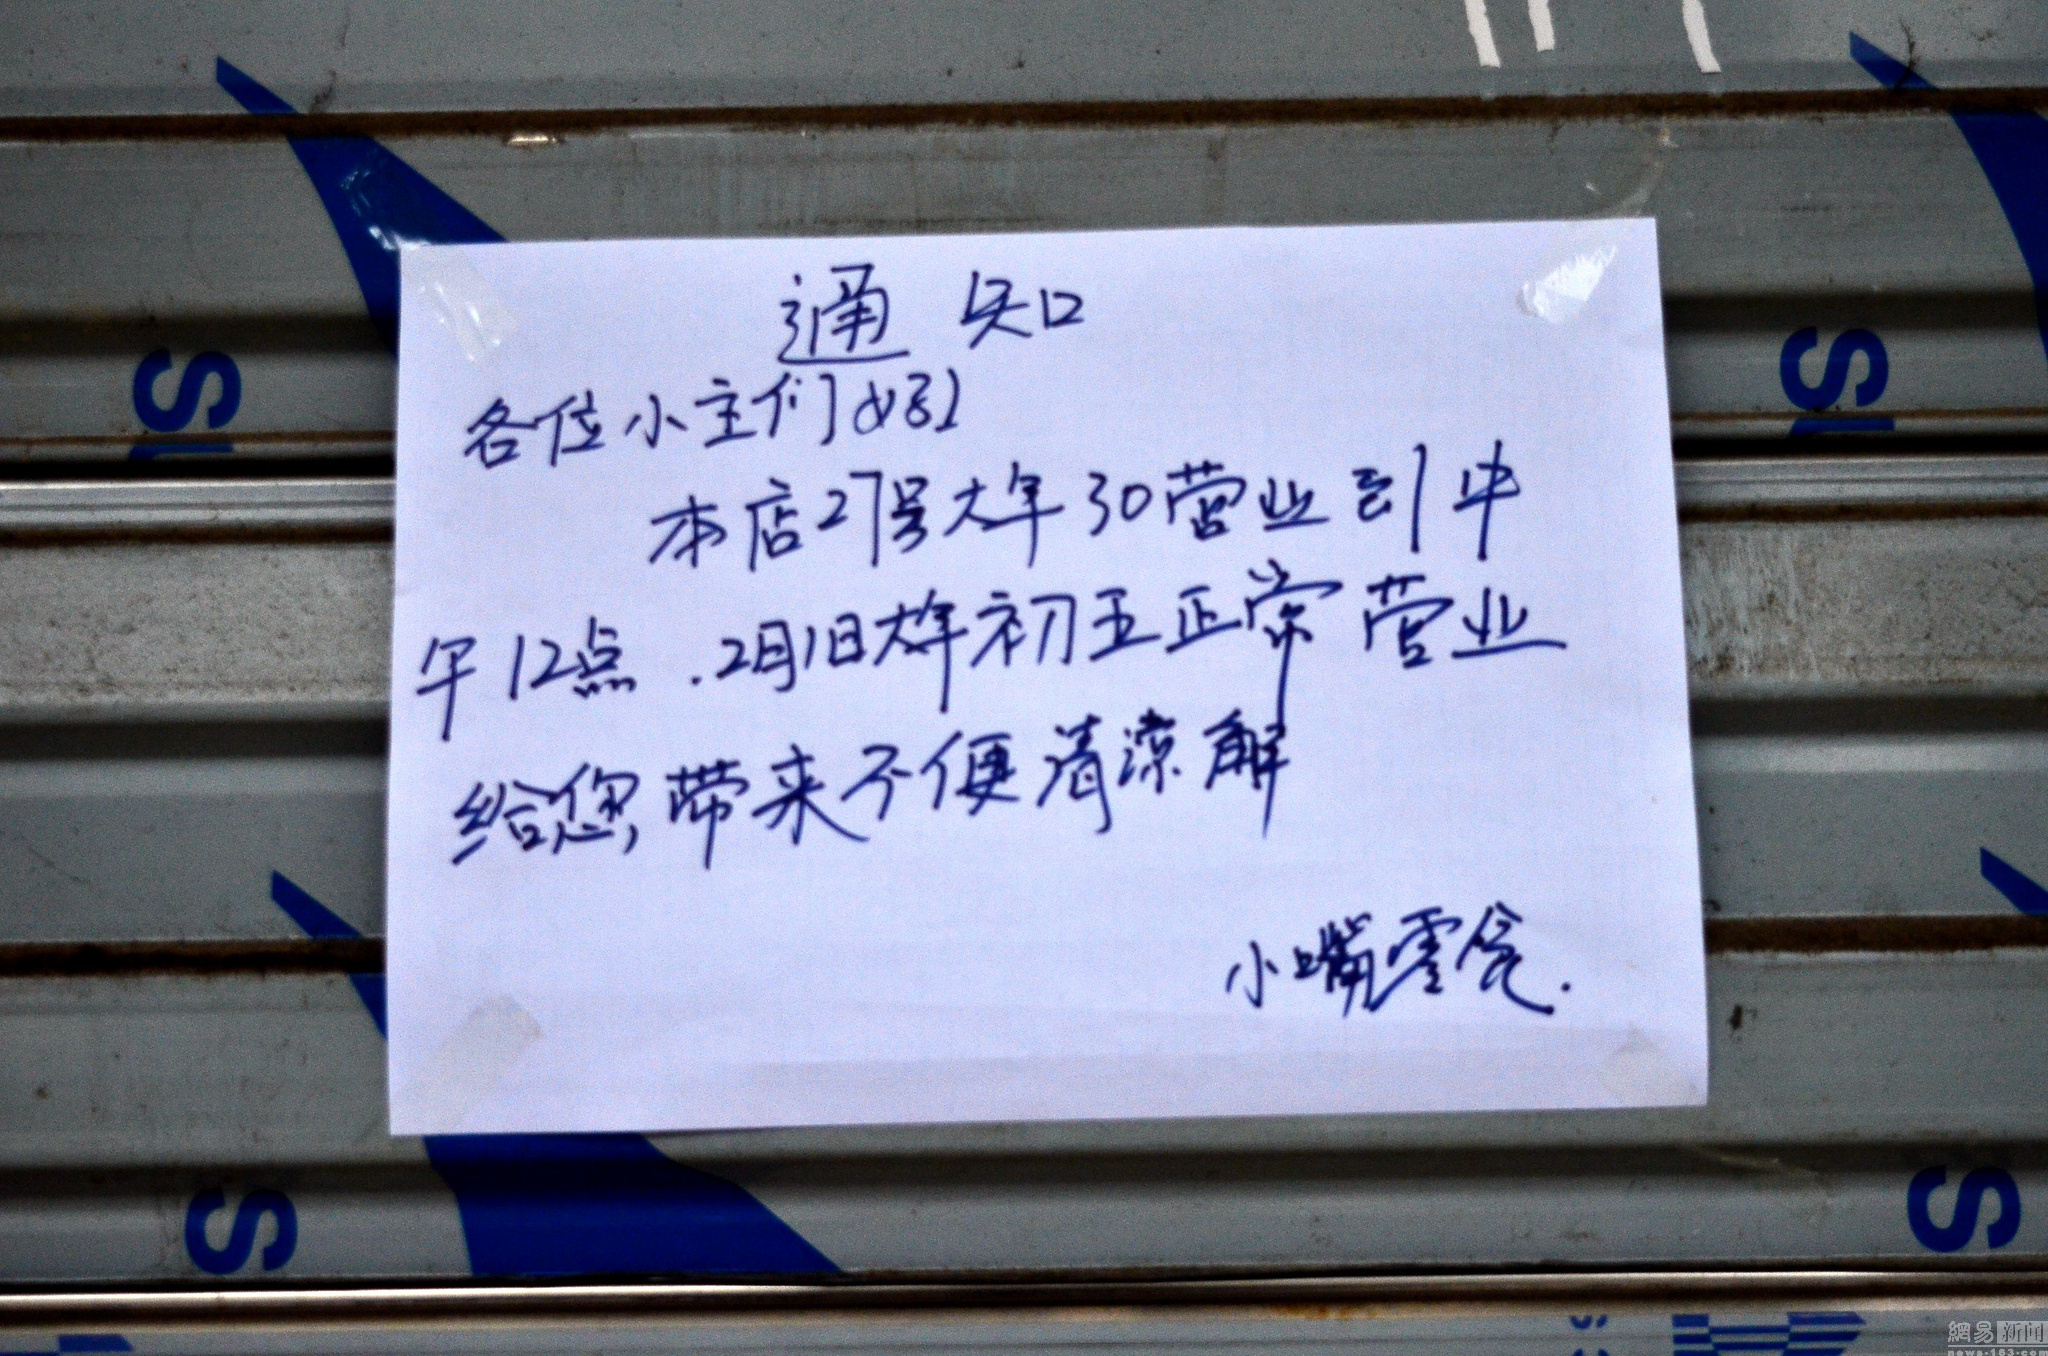 通知
各位小主们好
本店27号大年30营业到中
午12点.2月1日大年初五正常营业
给您带来不便请谅解
小嘴零食.
S
S
S
S
網易新闻
news.163.com